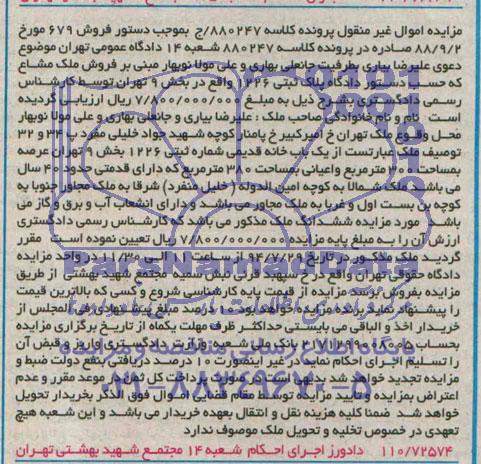 مزایده اموال غیر منقول پرونده کلاسه ۸۸۰۲۴۷/ج بموجب دستور فروش ۶۷۹ مورخ
۸۸/۹/۲ صادره در پرونده کلاسه ۸۸۰۲۴۷ شعبه ۱۴ دادگاه عمومی تهران موضوع
دعوی علیرضا بیاری بطرفیت جانعلی بهاری و علی مولا نوبهار مبنی بر فروش ملک مشاع
که حسب دستور دادگاه پلاک ثبتی ۱۲۲۶ واقع در بخش ۹ تهران توسط کارشناس
رسمی دادگستری بشرح ذیل به مبلغ ۷/۸۰۰/۰۰۰/۰۰۰ ریال ارزیابی گردیده
است نام و نام خانوادگی صاحب ملک : علیرضا بیاری و جانعلی بهاری و علی مولا نوبهار
محل وقوع ملک تهران خ امیرکبیر خ پامنار کوچه شهید جواد خلیلی مفرد پ ۳۴ و ۳۲
توصیف ملک عبارتست از یک باب خانه قدیمی شماره ثبتی ۱۲۲۶ بخش ۹ تهران عرصه
بمساحت ۳۰۰ مترمربع واعیانی بمساحت ۳۸۰ مترمربع که دارای قدمتی حدود ۴۰ سال
می باشد ملک شمالا به کوچه امین الدوله (خلیل منفرد) شرقا به ملک مجاور جنوبا به
کوچه بن بست اول و غربا به ملک مجاور می باشد و دارای انشعاب آب و برق و گاز می
باشد مورد مزایده ششدانگ ملک مذکور می باشد که کارشناس رسمی دادگستری
ارزش آن را به مبلغ پایه مزایده ۷/۸۰۰/۰۰۰/۰۰۰ ریال تعیین نموده است مقرر
گردید ملک مذکور در تاریخ ۹۴/۷/۲۹ از ساعت ۱۱ الی ۱۱/۳۰ در واحد مزایده
دادگاه حقوقی تهران واقع در خ سپهبد قرنی نبش سمیه مجتمع شهید بهشتی از طریق
مزایده بفروش برسد مزایده از قیمت پایه کارشناسی شروع و کسی که بالاترین قیمت
را پیشنهاد نماید برنده مزایده خواهد بود ۱۰ درصد مبلغ پیشنهادی فی المجلس از
خریدار اخذ و الباقی می بایستی حداکثر ظرف مهلت یکماه از تاریخ برگزاری مزایده
بحساب بانک ملی شعبه وزارت دادگستری واریز و قبض آن
را تسلیم اجرای احکام نماید در غیر اینصورت ۱۰ درصد دریافتی بنفع دولت ضبط و
مزایده تجدید خواهد شد بدیهی است در صورت پرداخت کل ثمن در موعد مقرر و عدم
اعتراض بمزایده و تأیید مزایده توسط مقام قضایی اموال فوق الذکر بخریدار تحویل
خواهد شد ضمنا کلیه هزینه نقل و انتقال بعهده خریدار می باشد و این شعبه هیچ
تعهدی در خصوص تخلیه و تحویل ملک موصوف ندارد
۱۱۰/۷۲۵۷۴ دادورز اجرای احکام شعبه ۱۴ مجتمع شهید بهشتی تهران